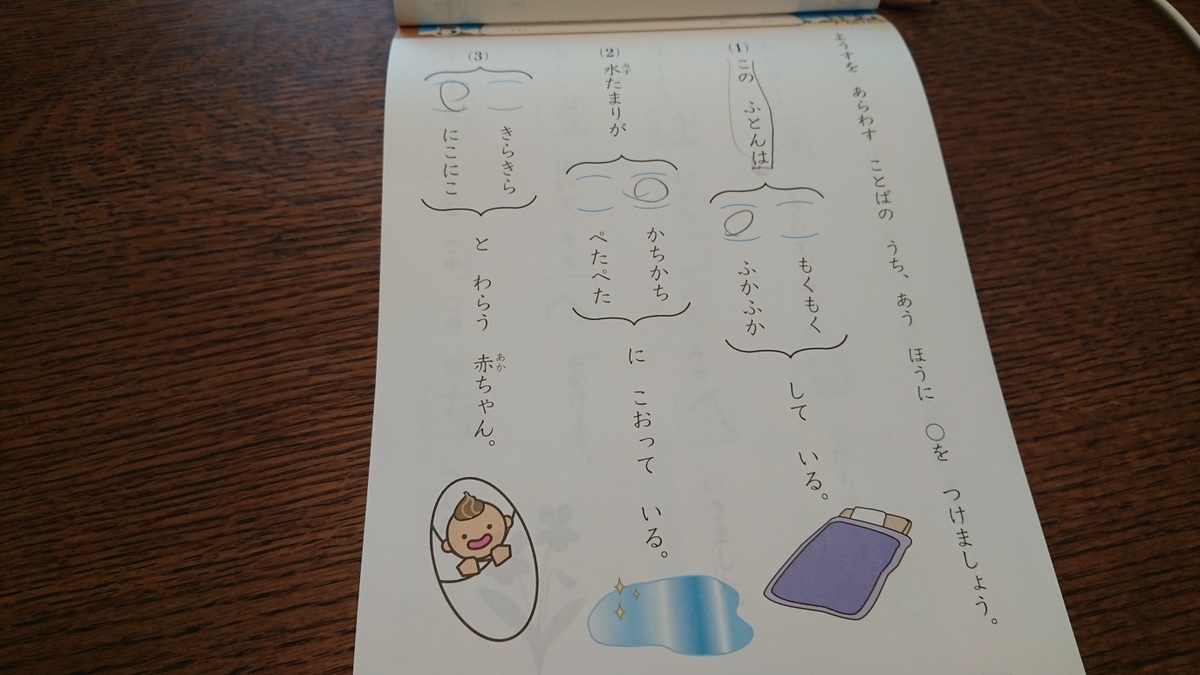 ようすを あらわす ことばの うち、あう ほうに ○を つけましょう。
(1) この ふとんは
もくもく
ふかふか
して いる。
(2) 水たまりが
みず
かちかち
ぺたぺた
に こおって いる。
(3)
きらきら
にこにこ
と わらう 赤ちゃん。
あか